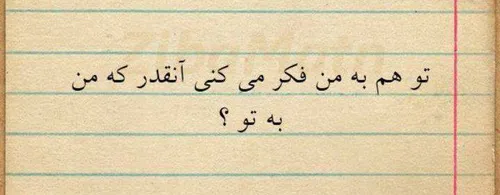 تو هم به من فکر می کنی آنقدر که من
به تو ؟